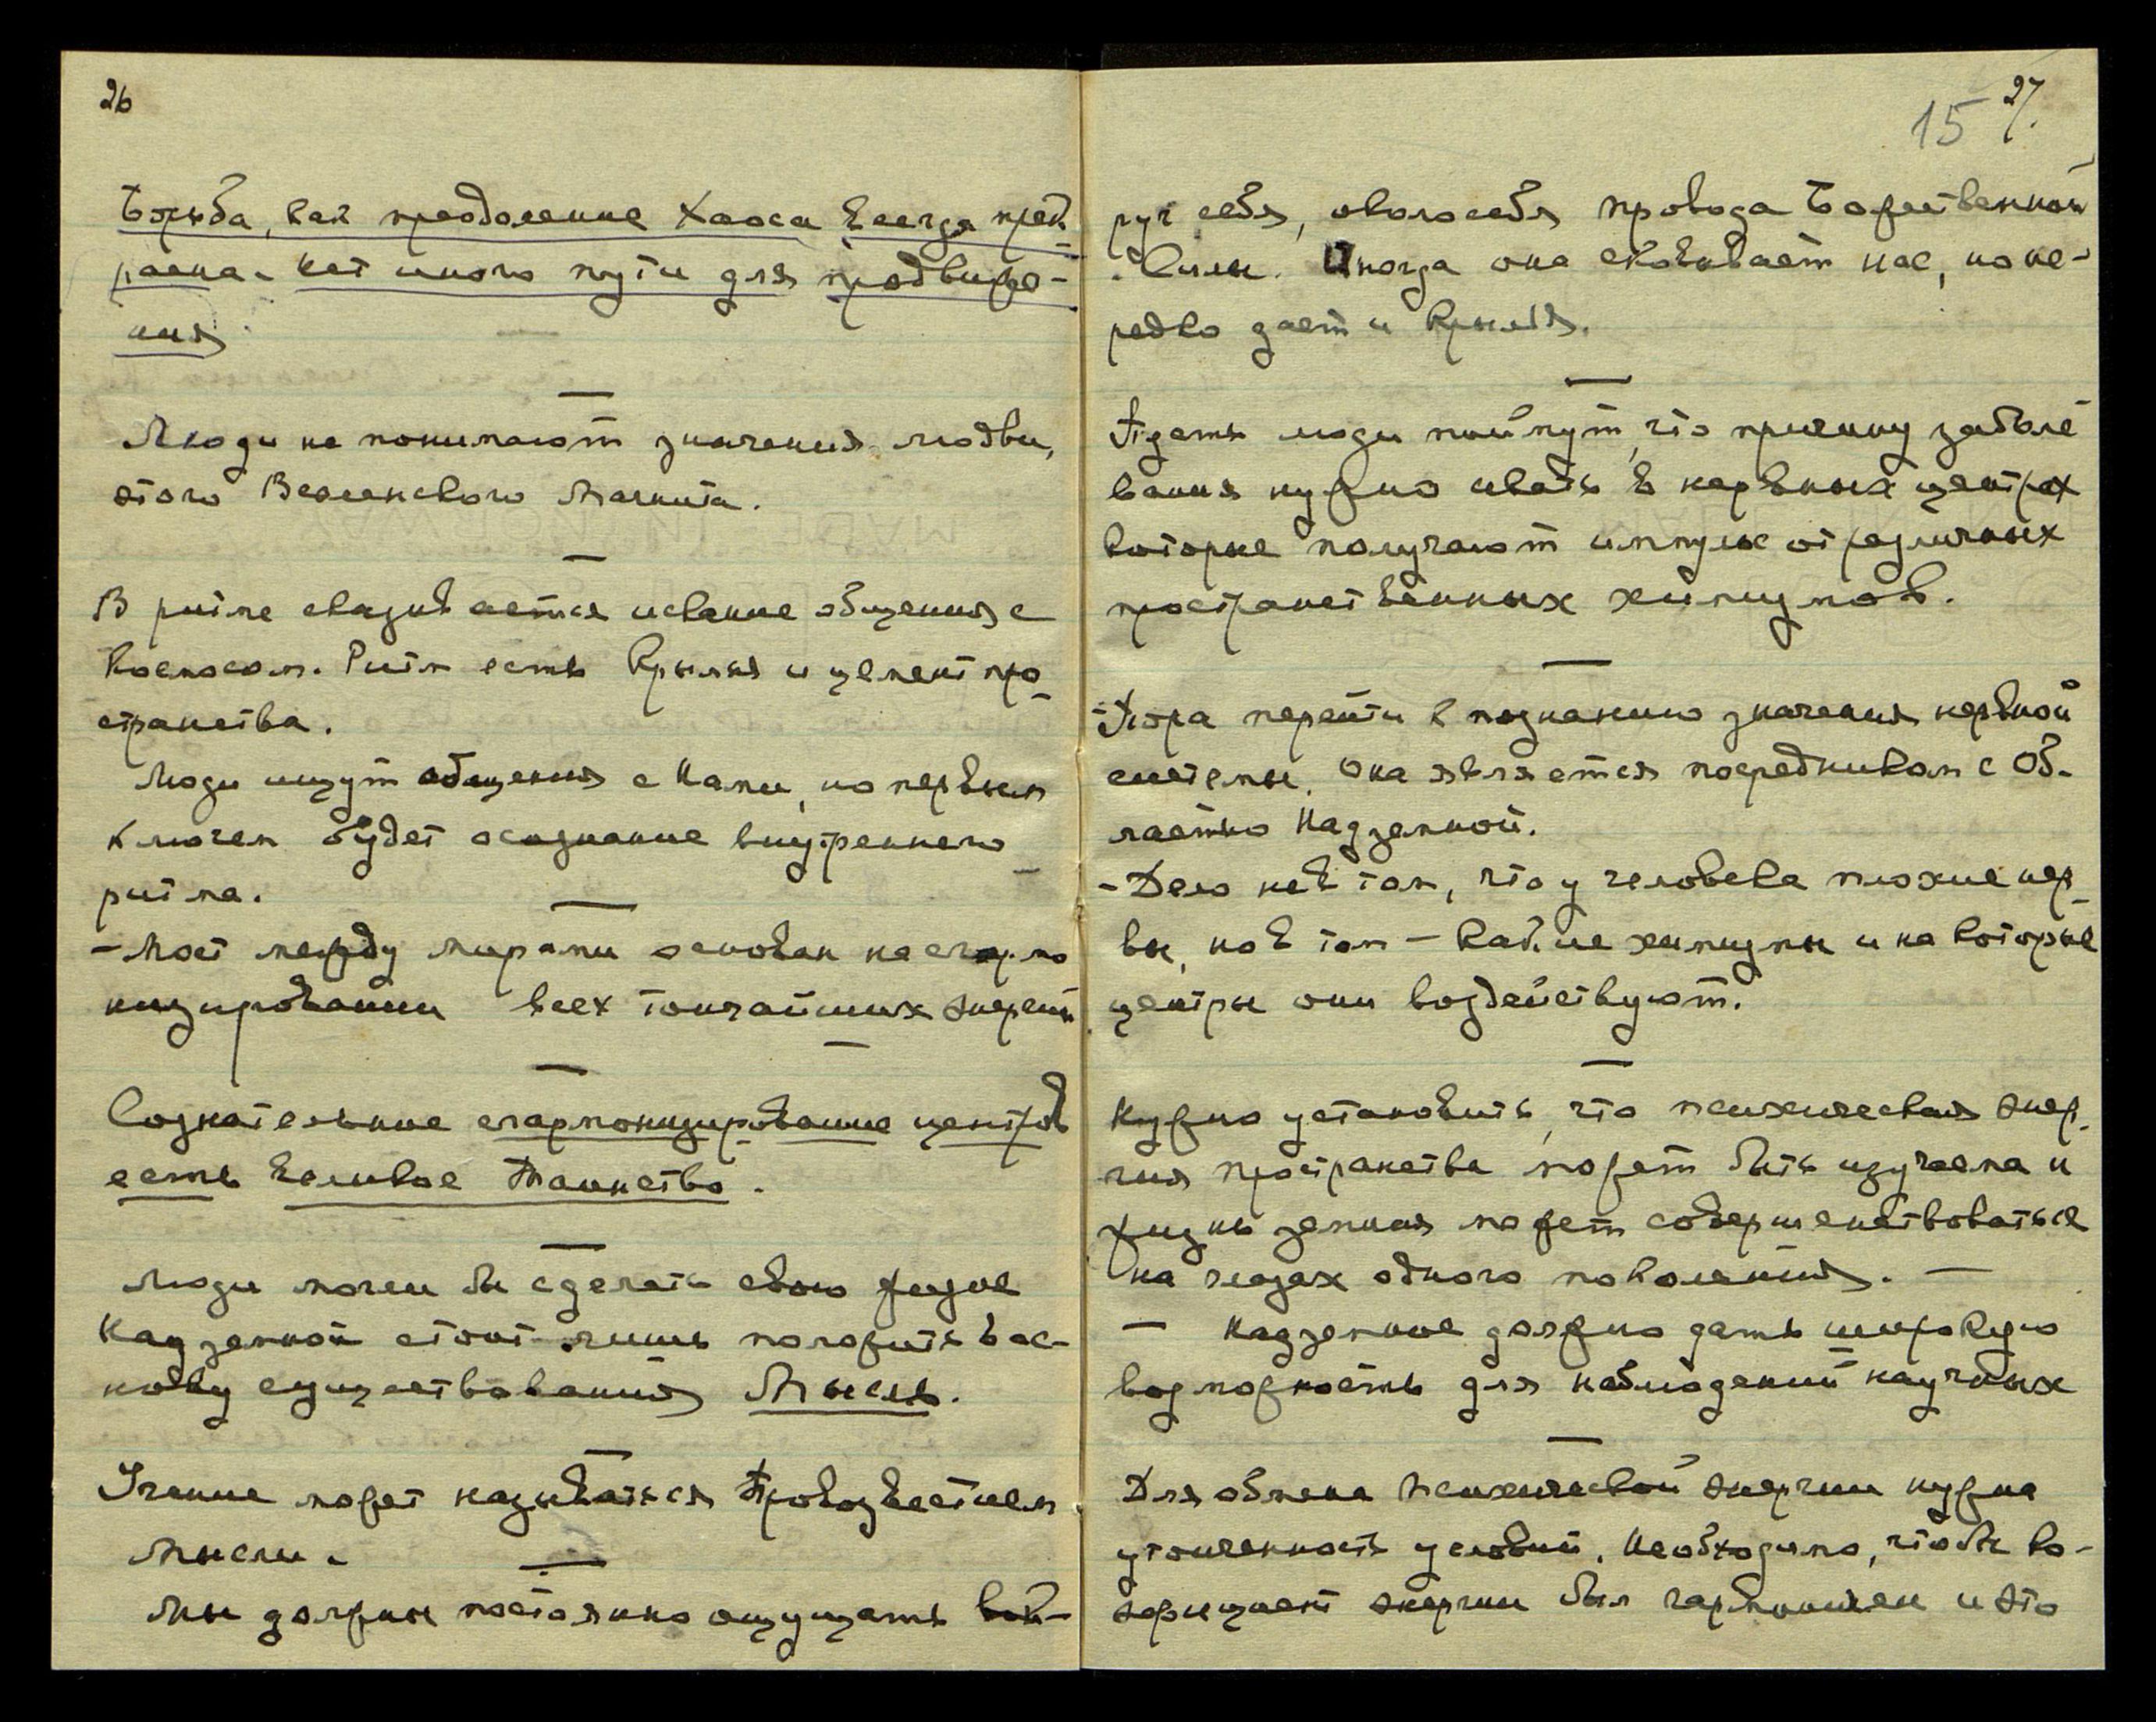 26
Борьба, как преодоление Хаоса всегда прек-
расна. Нет иного пути для продвиже-
ния
Люди не понимают значения любви,
этого Вселенского Магнита.
В ритме сказывается искание общения с
Космосом. Ритм есть Крылья и цемент про-
странства.
Люди ищут общения с Нами, но первым
ключем будет осознание внутреннего
ритма.
— Мост между мирами основан на сгармо
низировании всех тончайших энергий
Сознательное сгармонизирование центров
есть великое Таинство.
Люди могли бы сделать свою жизнь
Надземной стоит лишь положить в ос-
нову существования Мысль.
Учение может называться Провозвестием
Мысли.
Мы должны постоянно ощущать вок-
15 27.
руг себя, около себя провода Божественной
Силы. Иногда она сковывает нас, но не-
редко дает и Крылья.
Пусть люди поймут, что причину заболе
вания нужно искать в нервных центрах
которые получают импульс от различных
пространственных химизмов.
— Пора перейти к познанию значения нервной
системы. Она является посредником с Об-
ластью Надземной.
— Дело не в том, что у человека плохие нер-
вы, но в том — какие химизмы и на которые
центры они воздействуют.
Нужно установить, что психическая энер-
гия пространства может быть изучаема и
жизнь земная может совершенствоваться
на глазах одного поколения. —
— Надземное должно дать широкую
возможность для наблюдений научных
Для обмена психической энергии нужна
утонченность условий. Необходимо, чтобы ко-
эффициент энергии был гармоничен и это